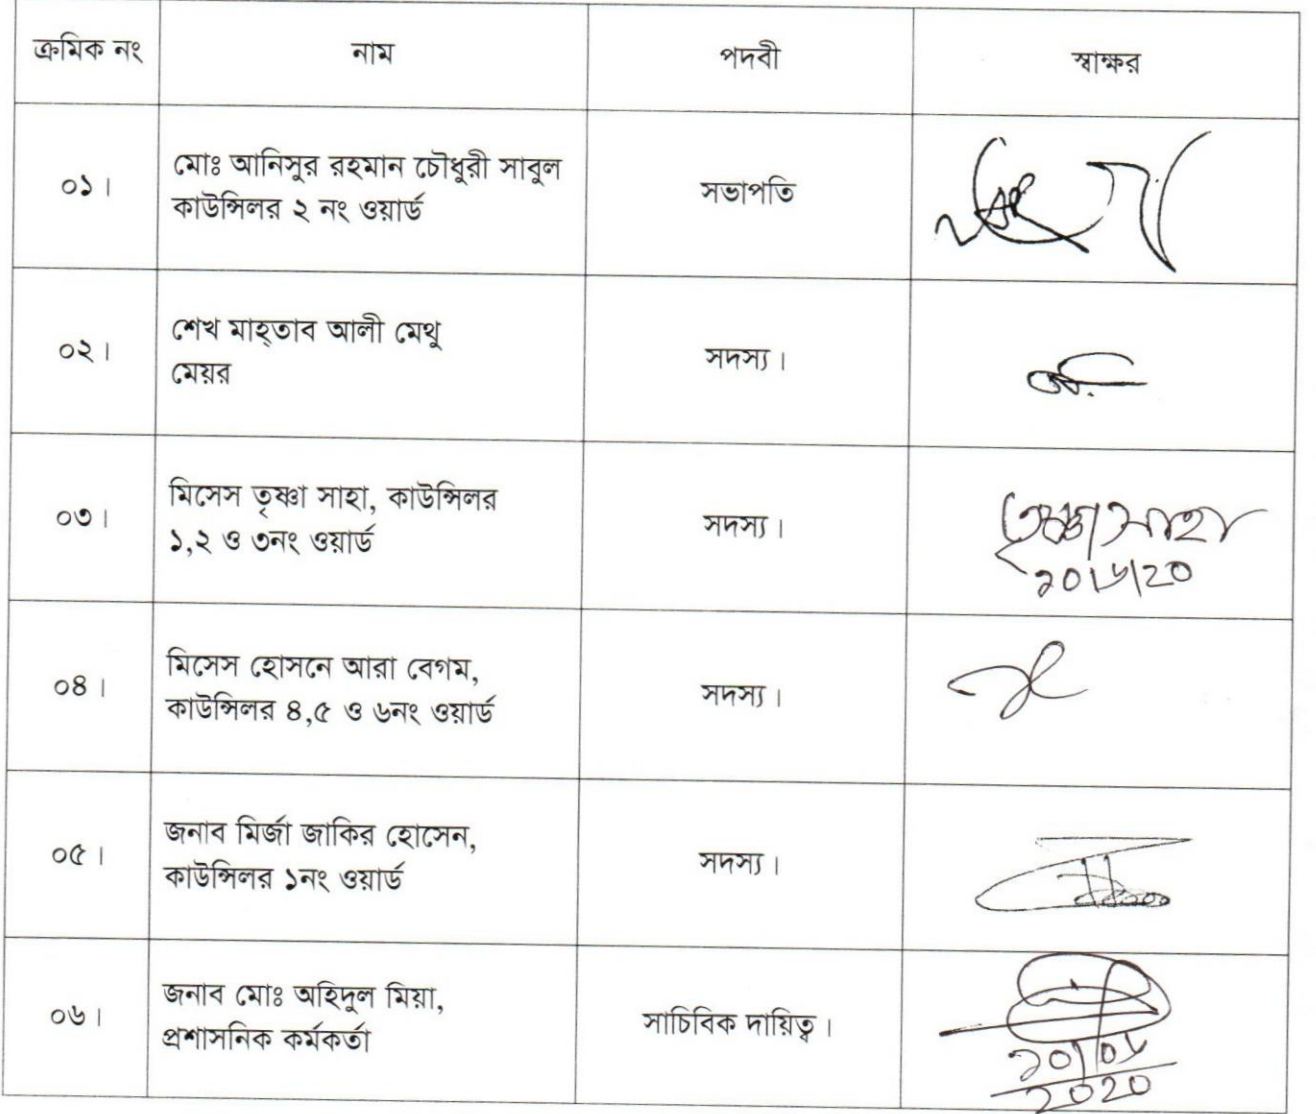 ক্রমিক নং নাম পদবী স্বাক্ষর
০১। মোঃ আনিসুর রহমান চৌধুরী সাবুল
কাউন্সিলর ২ নং ওয়ার্ড সভাপতি
০২। শেখ মাহ্তাব আলী মেথু
মেয়র সদস্য।
০৩। মিসেস তৃষ্ণা সাহা, কাউন্সিলর
১,২ ও ৩নং ওয়ার্ড সদস্য। তৃষ্ণা সাহা
০৪। মিসেস হোসনে আরা বেগম,
কাউন্সিলর ৪,৫ ও ৬নং ওয়ার্ড সদস্য।
০৫। জনাব মির্জা জাকির হোসেন,
কাউন্সিলর ১নং ওয়ার্ড সদস্য।
০৬। জনাব মোঃ অহিদুল মিয়া,
প্রশাসনিক কর্মকর্তা সাচিবিক দায়িত্ব।